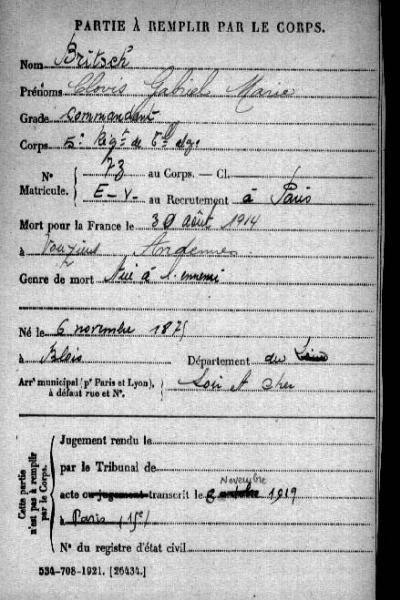 PARTIE À REMPLIR PAR LE CORPS.
Nom Britsch
Prénoms Clovis Gabriel Marie
Grade Commandant
Corps 5e Régt de
N° Matricule. 73 au Corps. — Cl.
E-V- au Recrutement à Paris
Mort pour la France le 30 août 1914
à Vouziers Ardennes
Genre de mort Tué à l'ennemi
Né le 6 novembre 1875
à Blois Département du
Arrt municipal (pr Paris et Lyon), à défaut rue et N°. Loir et cher
Cette partie n'est pas à remplir par le Corps.
Jugement rendu le
par le Tribunal de
Novembre
acte ou jugement transcrit le 8 octobre 1919
à Paris (15e)
N° du registre d'état civil
534-708-1921. [26434.]